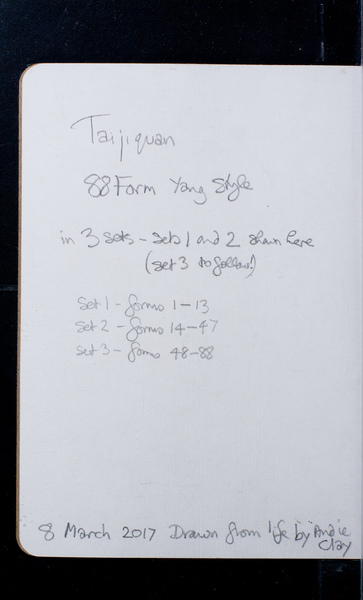 Taijiquan
88 Form Yang Style
in 3 sets - sets 1 and 2 shown here
(set 3 to follow!)
Set 1 - forms 1-13
Set 2 - forms 14-47
Set 3 - forms 48-88
8 March 2017 Drawn from life by Andie
Clay